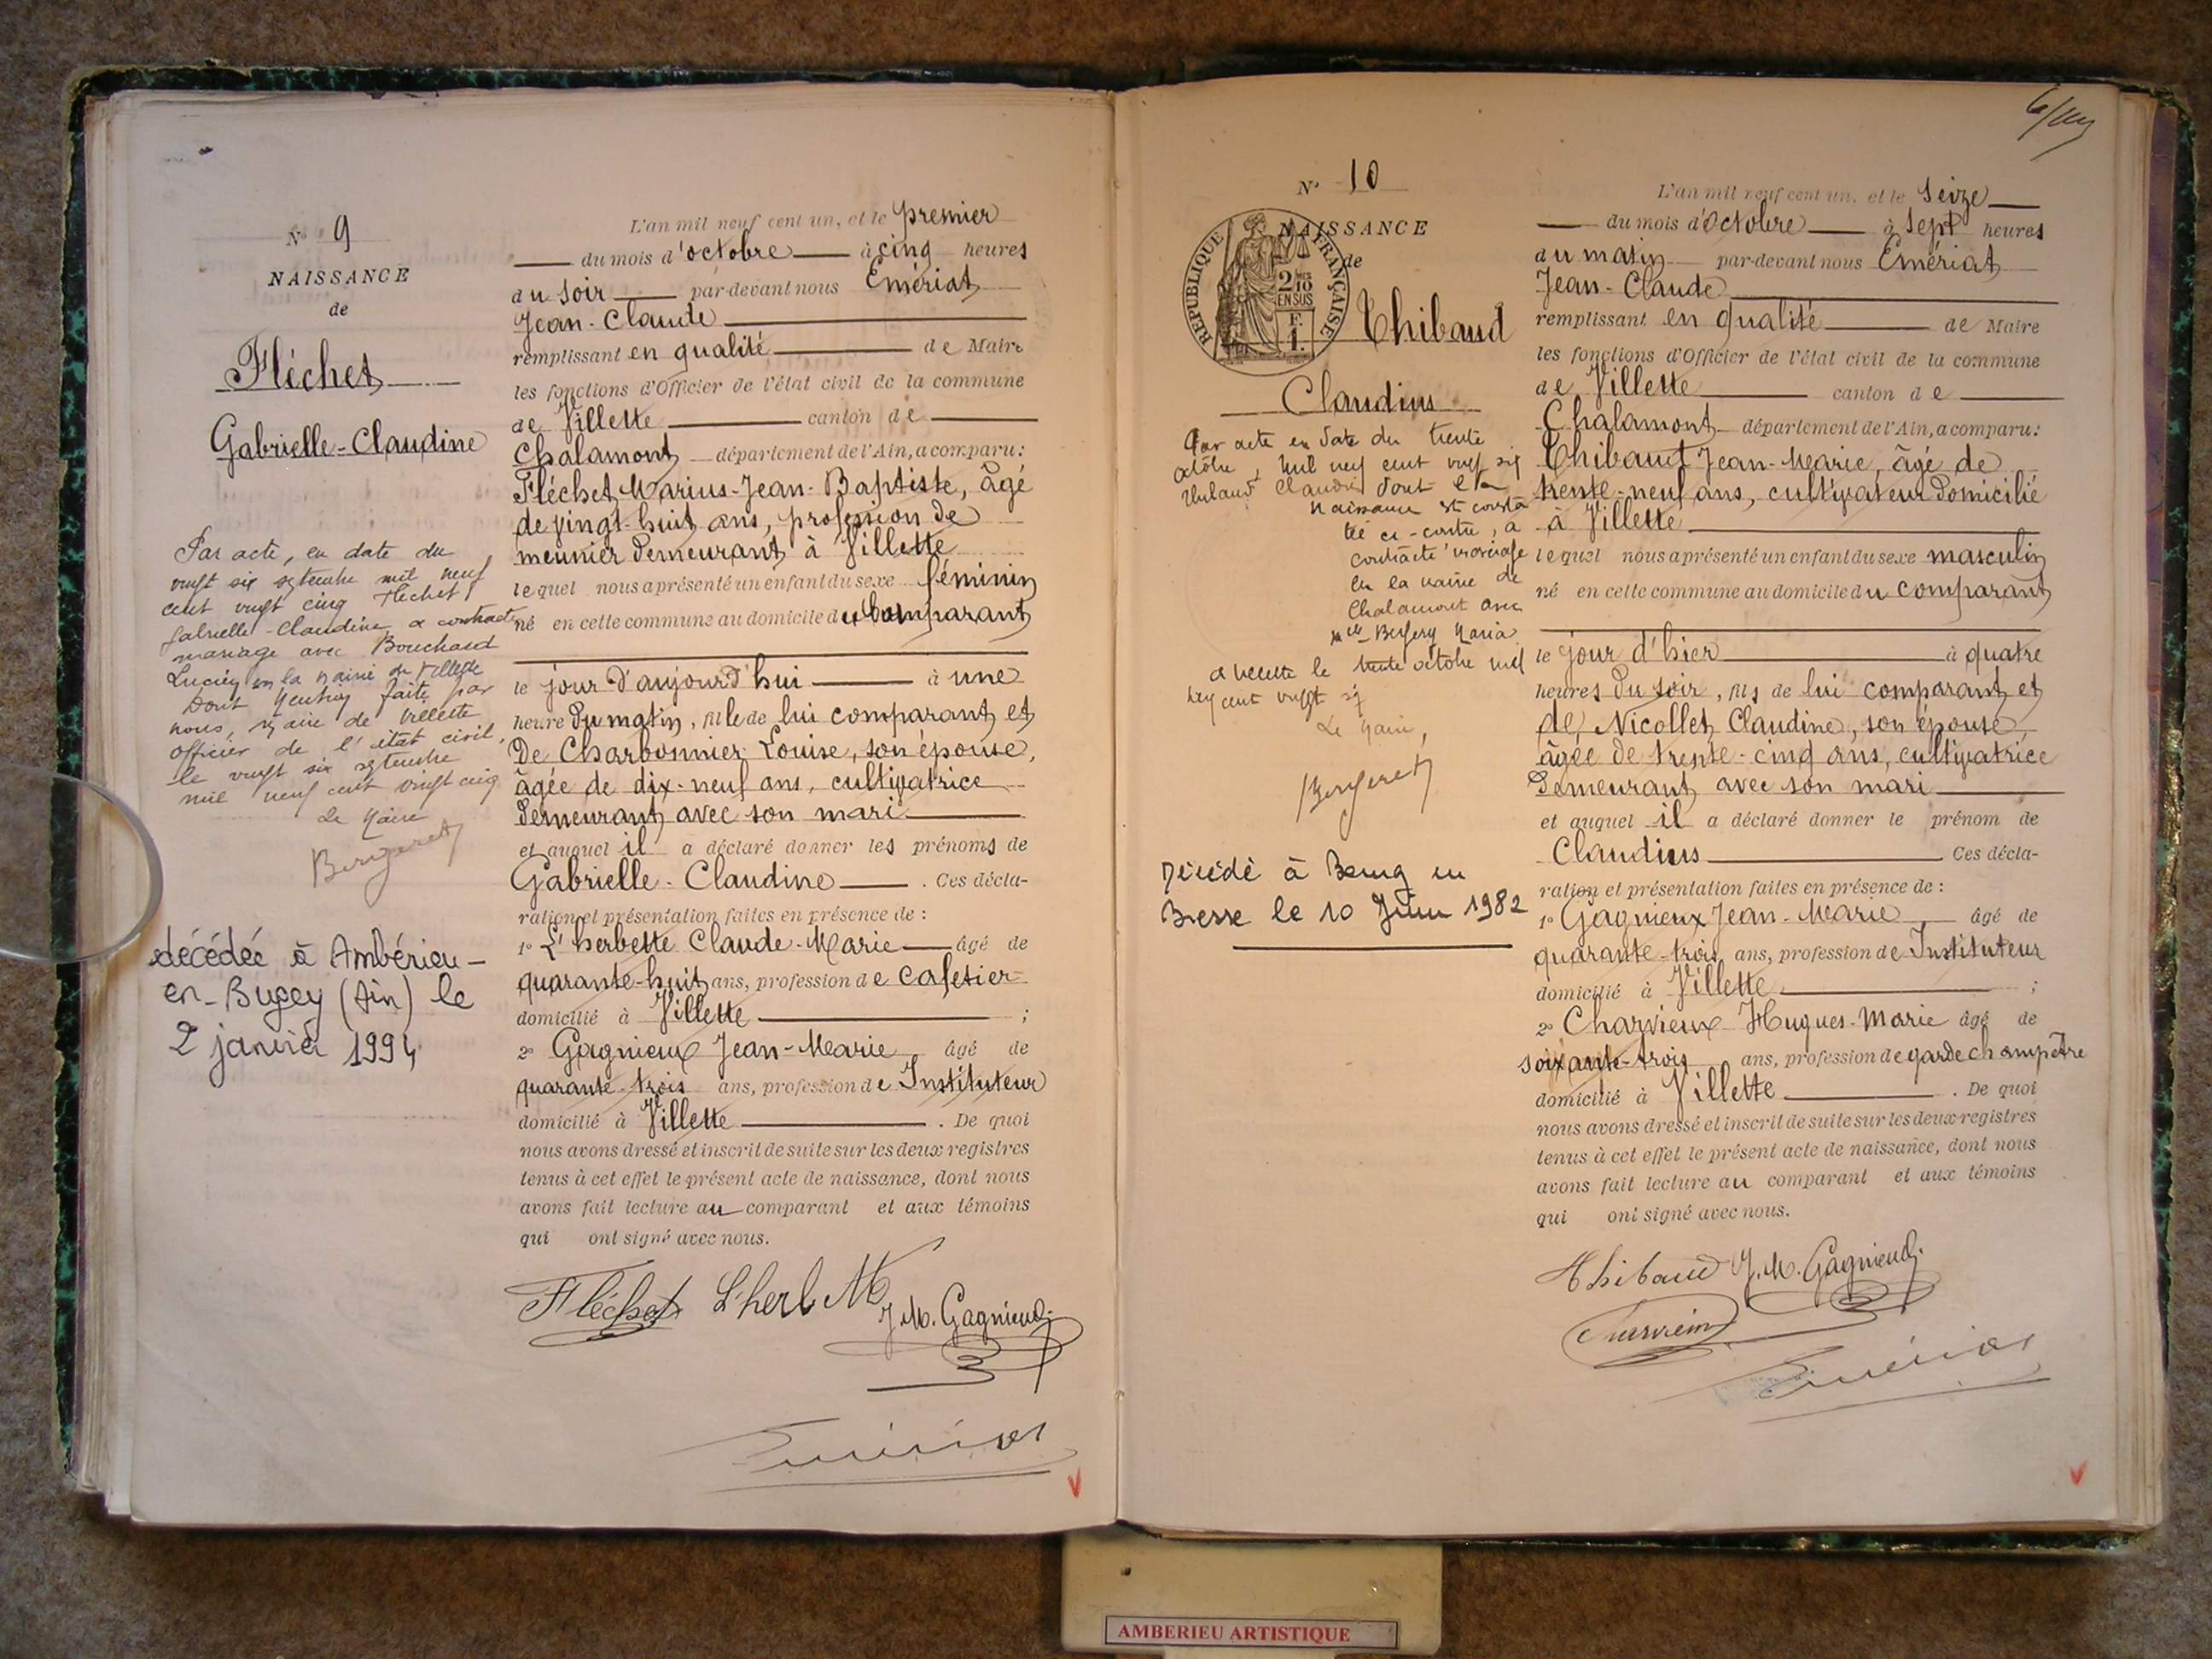 N° 9
NAISSANCE
de
Fléchet
Gabrielle-Claudine
Par acte, en date du
vingt six septembre mil neuf
cent vingt cinq Fléchet
Gabrielle-Claudine a contracté
mariage avec Bouchard
Lucien en la mairie de Villette
Dont mention faite par
nous, maire de Villette
officier de l'état civil,
le vingt six septembre
mil neuf cent vingt cinq
Le Maire
Bergeret
décédée à Ambérieu-
en-Bugey (Ain) le
2 janvier 1994
L'an mil neuf cent un, et le premier
du mois d'octobre à cinq heures
du soir par-devant nous Emériat
Jean-Claude
remplissant en qualité de Maire
les fonctions d'Officier de l'état civil de la commune
de Villette canton de
Chalamont département de l'Ain, a comparu:
Fléchet Marius-Jean-Baptiste, âgé
de vingt-huit ans, profession de
meunier demeurant à Villette
lequel nous a présenté un enfant du sexe féminin
né en cette commune au domicile du comparant
le jour d'aujourd'hui à une
heure du matin, fille de lui comparant et
de Charbonnier Louise, son épouse,
âgée de dix-neuf ans, cultivatrice
demeurant avec son mari
et auquel il a déclaré donner les prénoms de
Gabrielle-Claudine. Ces décla-
ration et présentation faites en présence de :
1° L'herbette Claude-Marie âgé de
quarante-huit ans, profession de cafetier
domicilié à Villette ;
2° Gagnieux Jean-Marie âgé de
quarante-trois ans, profession de Instituteur
domicilié à Villette. De quoi
nous avons dressé et inscrit de suite sur les deux registres
tenus à cet effet le présent acte de naissance, dont nous
avons fait lecture au comparant et aux témoins
qui ont signé avec nous.
Fléchet L'herbette
J.M. Gagnieux
Emériat
V
6/
N° 10
NAISSANCE
de
RÉPUBLIQUE FRANÇAISE
2/10
EN SUS
Thibaud
Claudius
Par acte en date du trente
octobre, mil neuf cent vingt six
Thibaud Claudius dont la
naissance est consta
tée ci-contre, a
contracté mariage
en la mairie de
Chalamont avec
Mlle Maria
à Villette le trente octobre mil
neuf cent vingt six
Le Maire,
Bergeret
Décédé à Bourg en
Bresse le 10 Juin 1982
L'an mil neuf cent un, et le Seize
du mois d'octobre à Sept heures
du matin par-devant nous Emériat
Jean-Claude
remplissant en qualité de Maire
les fonctions d'Officier de l'état civil de la commune
de Villette canton de
Chalamont département de l'Ain, a comparu:
Thibaud Jean-Marie, âgé de
trente-neuf ans, cultivateur domicilié
à Villette
lequel nous a présenté un enfant du sexe masculin
né en cette commune au domicile du comparant
le jour d'hier à quatre
heures du soir, fils de lui comparant et
de Nicollet Claudine, son épouse,
âgée de trente-cinq ans, cultivatrice
demeurant avec son mari
et auquel il a déclaré donner le prénom de
Claudius Ces décla-
ration et présentation faites en présence de :
1° Gagnieux Jean-Marie âgé de
quarante-trois ans, profession de Instituteur
domicilié à Villette ;
2° Charvieux Hugues-Marie âgé de
soixante-trois ans, profession de garde champêtre
domicilié à Villette. De quoi
nous avons dressé et inscrit de suite sur les deux registres
tenus à cet effet le présent acte de naissance, dont nous
avons fait lecture au comparant et aux témoins
qui ont signé avec nous.
Thibaud J.M. Gagnieux
Charvieux
Emériat
V
AMBERIEU ARTISTIQUE